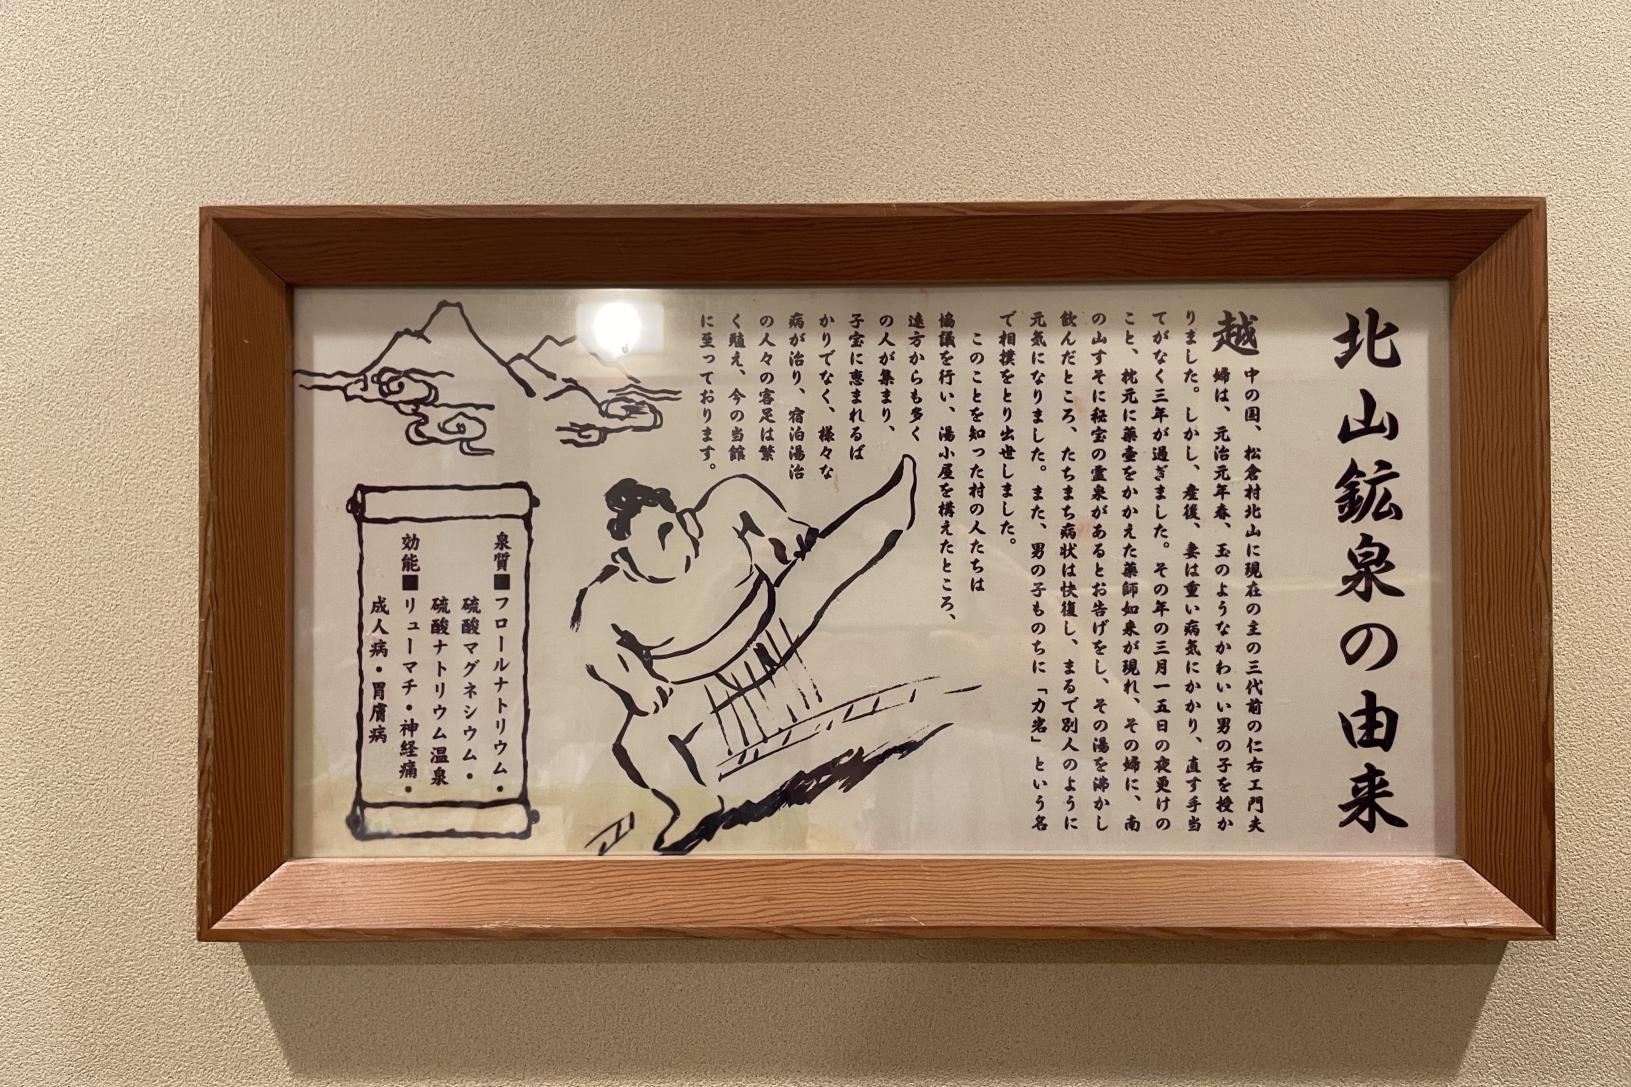 北山鉱泉の由来
越中の国、松倉村北山に現在の主の三代前の仁右エ門夫
婦は、元治元年春、玉のようなかわいい男の子を授か
りました。しかし、産後、妻は重い病気にかかり、直す手当
てがなく三年が過ぎました。その年の三月一五日の夜更けの
こと、枕元に薬壷をかかえた薬師如来が現れ、その婦に、南
の山すそに秘宝の霊泉があるとお告げをし、その湯を沸かし
飲んだところ、たちまち病状は快復し、まるで別人のように
元気になりました。また、男の子ものちに「力岩」という名
で相撲をとり出世しました。
このことを知った村の人たちは
協議を行い、湯小屋を構えたところ、
遠方からも多く
の人が集まり、
子宝に恵まれるば
かりでなく、様々な
病が治り、宿泊湯治
の人々の客足は繁
く殖え、今の当館
に至っております。
泉質■フロールナトリウム・
硫酸マグネシウム・
硫酸ナトリウム温泉
効能■リューマチ・神経痛・
成人病・胃膚病